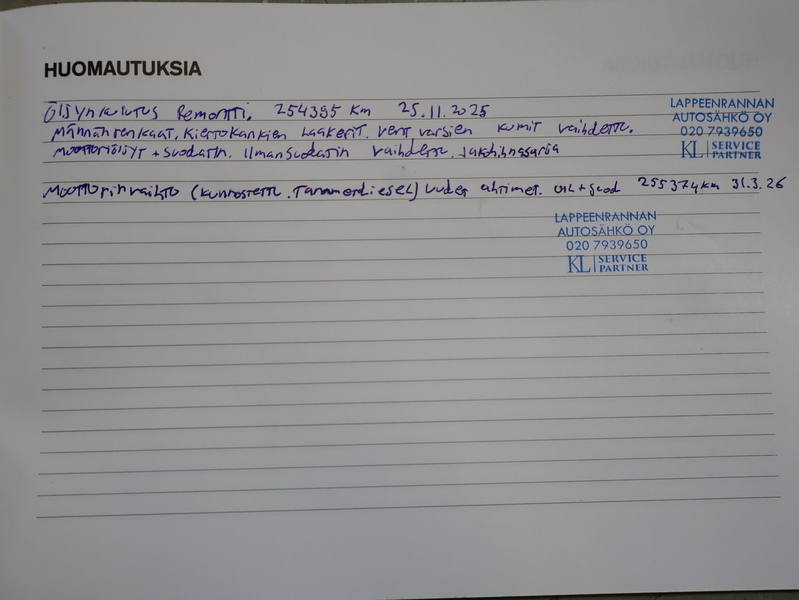 HUOMAUTUKSIA
Öljynkulutus Remontti. 254385 km 25.11.2025
Männänrenkaat, Kiertokankien Laakerit. vent varsien kumit vaihdettu.
moottoriöljyt + suodatin. Ilmansuodatin vaihdettu. Jakohihnasarja
LAPPEENRANNAN
AUTOSÄHKÖ OY
020 7939650
KL SERVICE PARTNER
Moottorinvaihto (kunnostettu. Tammerdiesel) uudet ahtimet. öil + suod 255374km 31.3.26
LAPPEENRANNAN
AUTOSÄHKÖ OY
020 7939650
KL SERVICE PARTNER